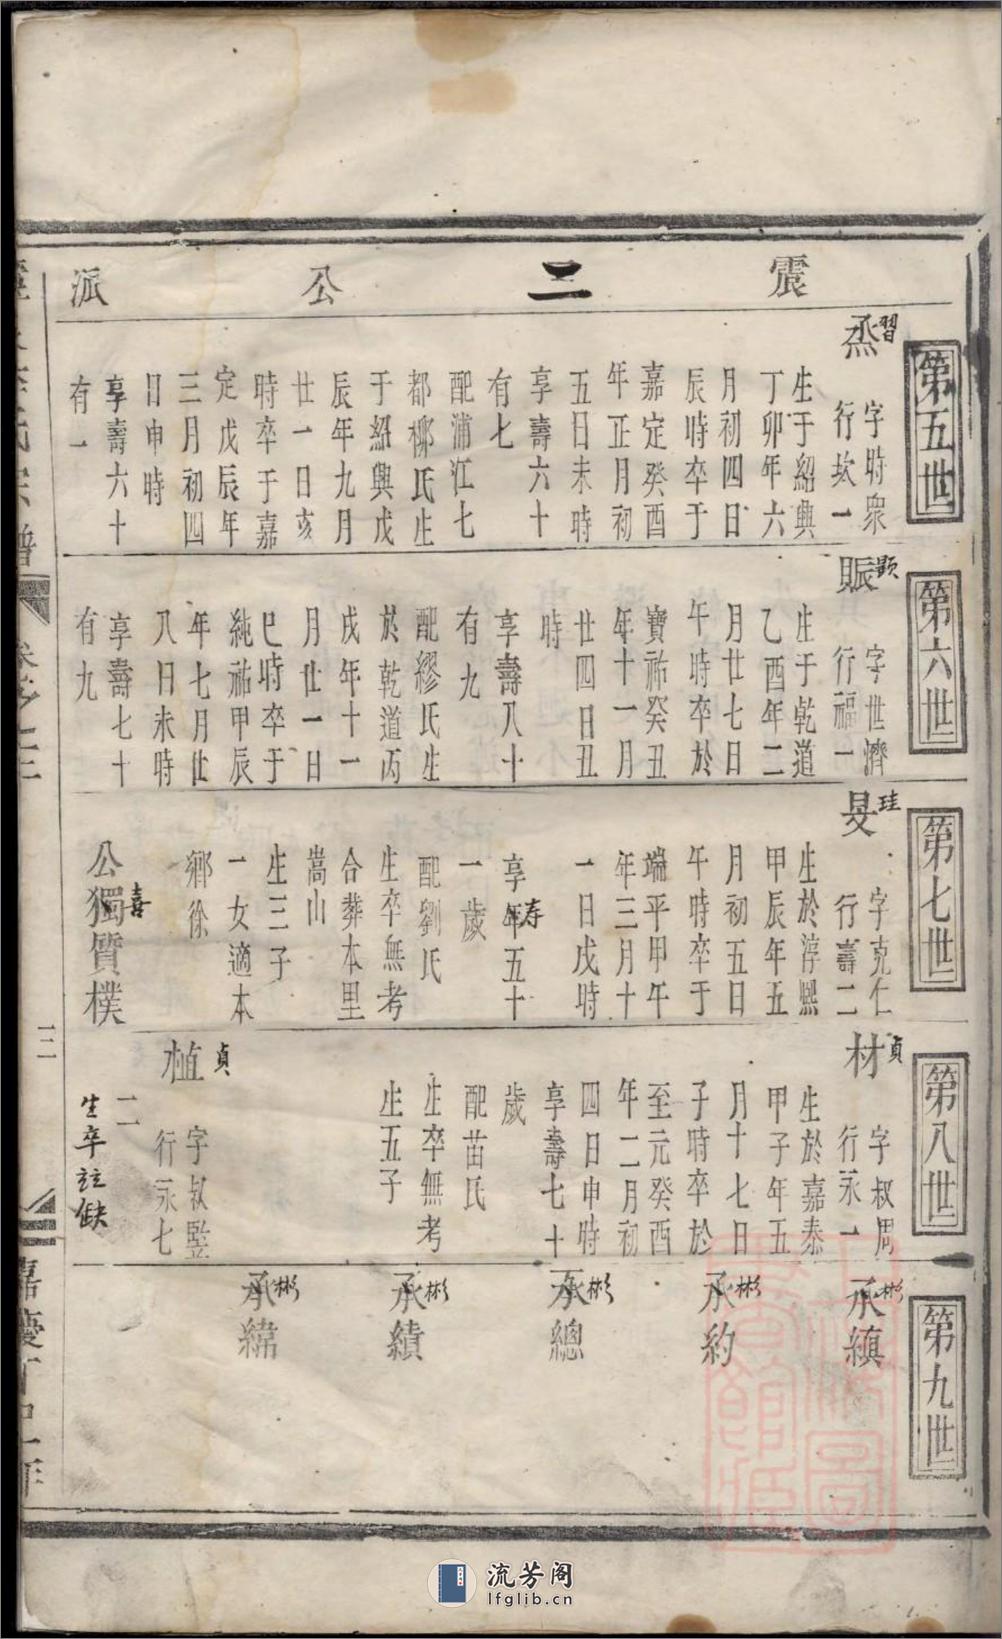 震二公派
第五世
習
烝
字時衆
行坎一
生于紹興
丁卯年六
月初四日
辰時卒于
嘉定癸酉
年正月初
五日未時
享壽六十
有七
配浦江七
都柳氏生
于紹興戊
辰年九月
廿一日亥
時卒于嘉
定戊辰年
三月初四
日申時
享壽六十
有一
第六世
顯
賑
字世濟
行福一
生于乾道
乙酉年二
月廿七日
午時卒於
寶祐癸丑
年十一月
廿四日丑
時
享壽八十
有九
配繆氏生
於乾道丙
戌年十一
月廿一日
巳時卒于
純祐甲辰
年七月廿
八日未時
享壽七十
有九
第七世
珪
旻
字克仁
行壽二
生於淳熙
甲辰年五
月初五日
午時卒于
端平甲午
年三月十
一日戌時
享年五十
寿
一歲
配劉氏
生卒無考
合葬本里
嵩山
生三子
一女適本
鄉徐
喜
公獨質樸
第八世
貞
材
字叔周
行永一
生於嘉泰
甲子年五
月十七日
子時卒於
至元癸酉
年二月初
四日申時
享壽七十
歲
配苗氏
生卒無考
生五子
貞
植
字叔監
行永七
二
生卒註缺
第九世
彬
承縝
彬
承約
彬
承總
彬
承績
彬
承緯
卷之二
二
嘉慶丁巳年
流芳阁
lfglib.cn